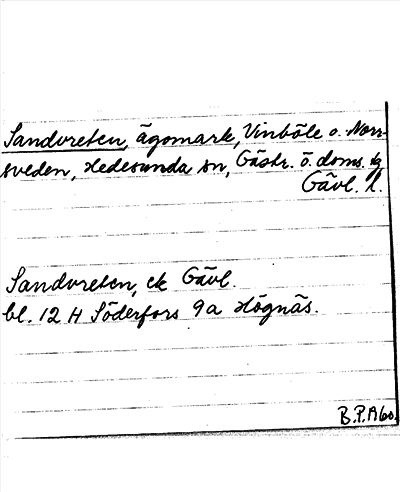 Sandvreten, ägomark, Vinböle o. Norr-
sveden, Hedesunda sn, Gästr. ö. doms. sg
Gävl. l.
Sandvreten, ek Gävl.
bl. 12 H Söderfors 9a Högnäs.
B.P.A60.